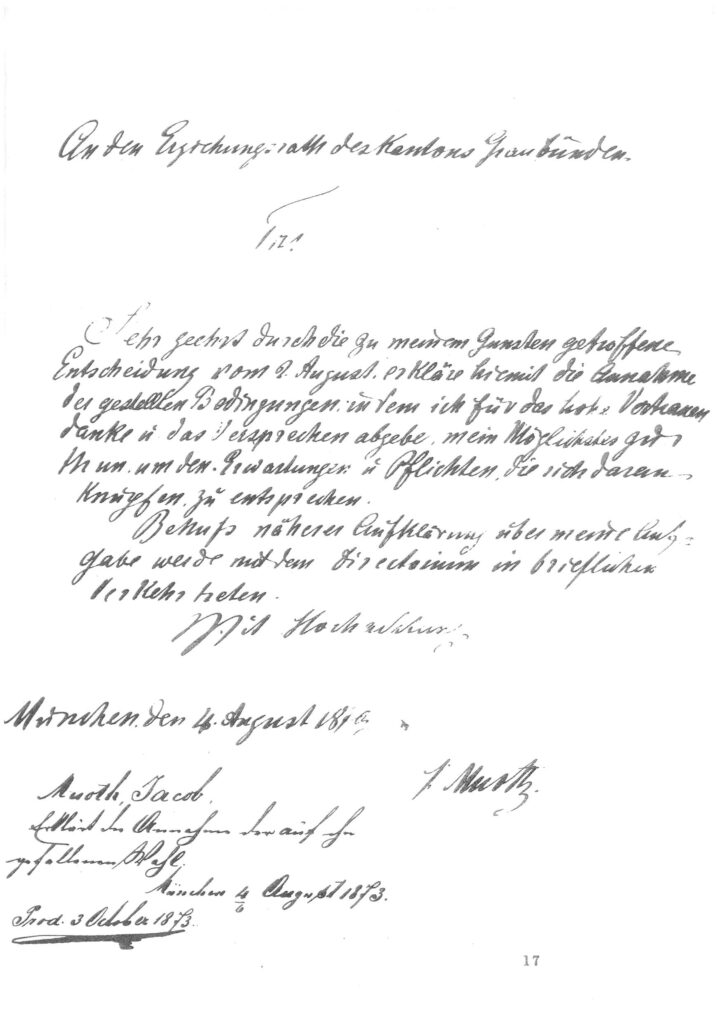 An den Erziehungsrath des Kantons Graubünden.
Tit!
Sehr geehrt durch die zu meinem Gunsten getroffene
Entscheidung vom 2. August. erkläre hiemit die Annahme
der gestellten Bedingungen, indem ich für das hohe Vertrauen
danke u das Versprechen abgebe, mein Möglichstes zu
thun, um den Erwartungen u Pflichten, die sich daran
knüpfen, zu entsprechen.
Behufs näherer Aufklärung über meine Auf=
gabe werde mit dem Directorium in brieflichen
Verkehr treten.
Mit Hochachtung
München, den 4. August
J. Muoth.
Muoth, Jacob.
Erklärt die Annahme der auf ihn
gefallenen Wahl.
München 4/6 August 1873.
Prod. 3 October 1873.
17